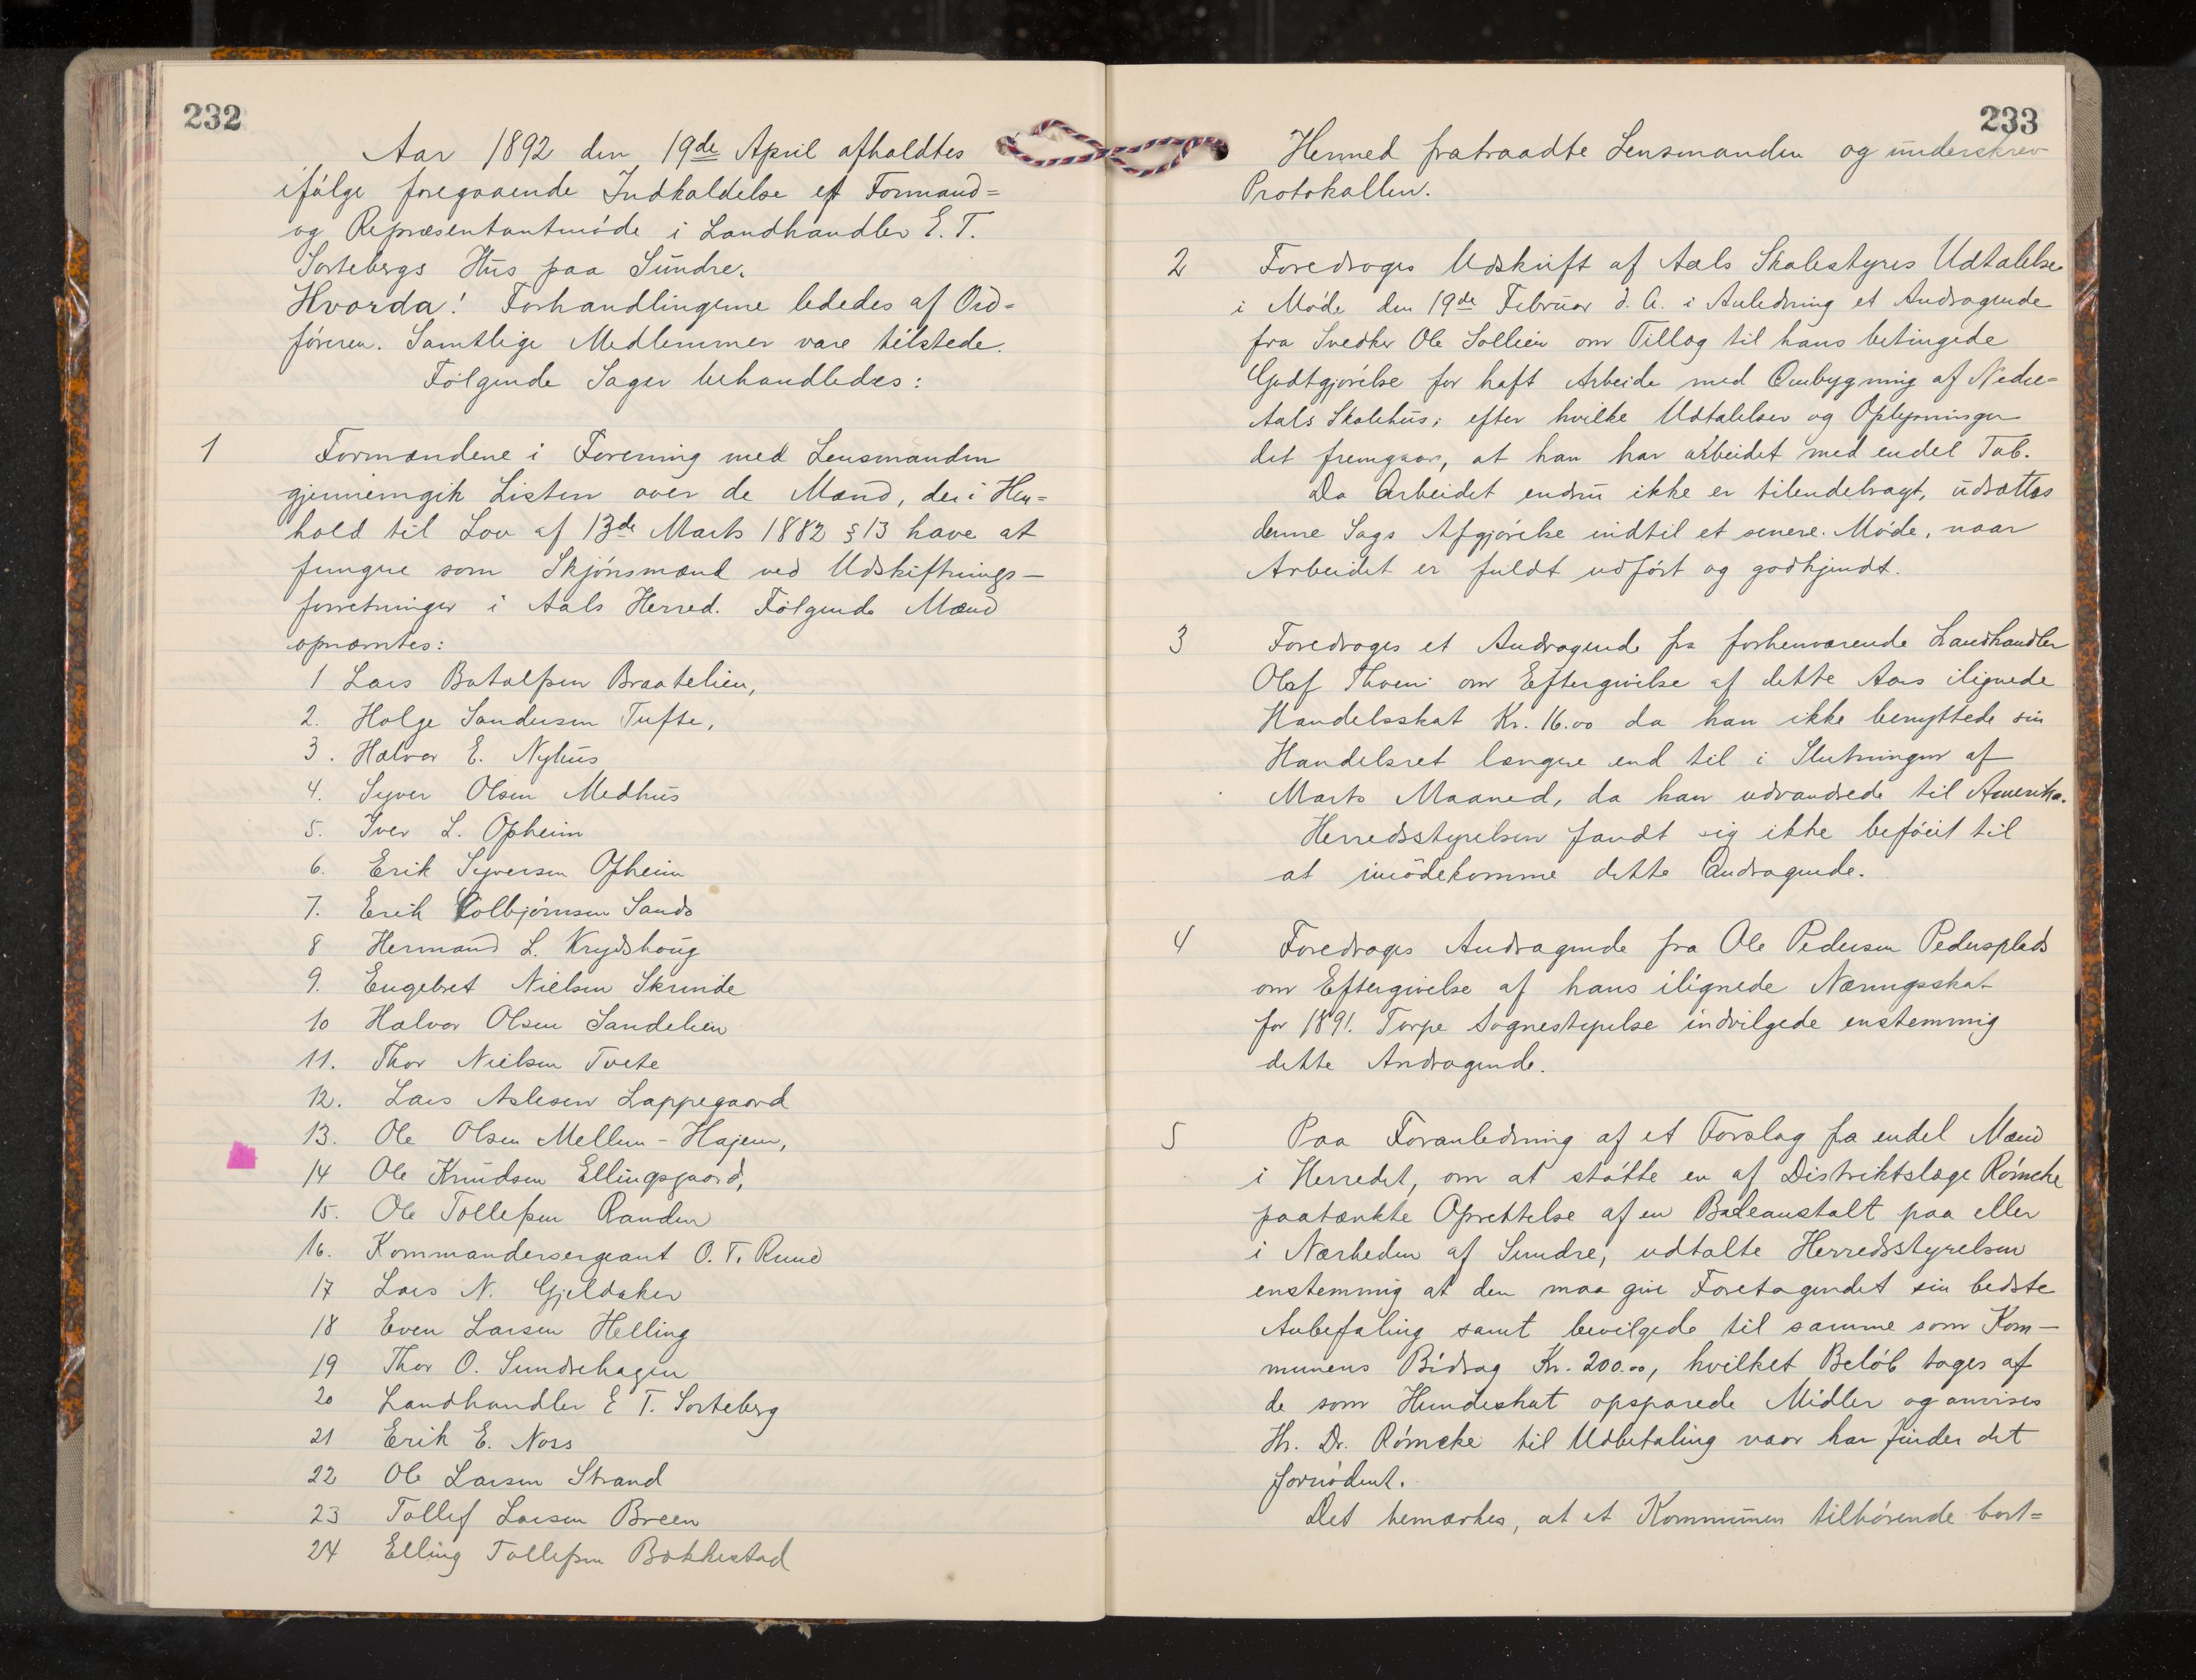 232
Aar 1892 den 19de April afholdtes
ifølge foregaaende Indkaldelse et Formand=
og Repræsentantmøde i Landhandler E. T.
Sortebergs Hus paa Sundre.
Hvorda! Forhandlingerne lededes af Ord=
føreren. Samtlige Medlemmer vare tilstede.
Følgende Sager behandledes:
1 Formændene i Forening med Lensmanden
gjennemgik Listen over de Mænd, der i Hen=
hold til Lov af 13de Marts 1882 § 13 have at
fungere som Skjønsmænd ved Udskiftnings-
forretninger i Aals Herred. Følgende Mænd
opnævntes:
1 Lars Botolfsen Braatelien,
2. Holge Sandersen Tufte,
3. Halvor E. Nyhus
4. Syver Olsen Medhus
5. Iver L. Opheim
6. Erik Syversen Opheim
7. Erik Kolbjørnsen Sando
8 Hermand L. Krydshoug
9. Engebret Nielsen Skrinde
10 Halvor Olsen Sandelien
11. Thor Nielsen Tvete
12. Lars Aslesen Lappegaard
13. Ole Olsen Mellem-Hajem,
14 Ole Knudsen Ellingsgaard,
15. Ole Tollefsen Randen
16. Kommandersergeant O. T. Ruud
17 Lars N. Gjeldaker
18 Even Larsen Helling
19 Thor O. Sundrehagen
20 Landhandler E T. Sorteberg
21 Erik E. Noss
22 Ole Larsen Strand
23 Tollef Larsen Breen
24 Elling Tollefsen Bakkestad
233
Hermed fratraadte Lensmanden og underskrev
Protokollen.
2 Foredroges Udskrift af Aals Skolestyres Udtalelse
i Møde den 19de Februar d. A. i Anledning et Andragende
fra Snedker Ole Sollien om Tillæg til hans betingede
Godtgjørelse for haft Arbeide med Ombygning af Nedre-
Aals Skolehus; efter hvilke Udtalelser og Oplysninger
det fremgaar, at han har arbeidet med endel Tab.
Da Arbeidet endnu ikke er tilendebragt, udsættes
denne Sags Afgjørelse indtil et senere Møde, naar
Arbeidet er fuldt udført og godkjendt.
3 Foredroges et Andragende fra forhenværende Landhandler
Olaf Thoen om Eftergivelse af dette Aars ilignede
Handelsskat Kr. 16.00 da han ikke benyttede sin
Handelsret længere end til i Slutningen af
Marts Maaned, da han udvandrede til Amerika.
Herredsstyrelsen fandt sig ikke beføiet til
at imødekomme dette Andragende.
4 Foredroges Andragende fra Ole Pedersen Pedersplads
om Eftergivelse af hans ilignede Næringsskat
for 1891. Torpe Sognestyrelse indvilgede enstemmig
dette Andragende.
5 Paa Foranledning af et Forslag fra endel Mænd
i Herredet, om at støtte en af Distriktslæge Rømcke
paatænkte Oprettelse af en Badeanstalt paa eller
i Nærheden af Sundre, udtalte Herredsstyrelsen
enstemmig at den maa give Foretagendet sin bedste
Anbefaling samt bevilgede til samme som Kom-
munens Bidrag Kr. 200.00, hvilket Beløb tages af
de som Hundeskat opsparede Midler og anvises
Hr. Dr. Rømcke til Udbetaling naar han finder det
fornødent.
Det bemærkes, at et Kommunen tilhørende bort=